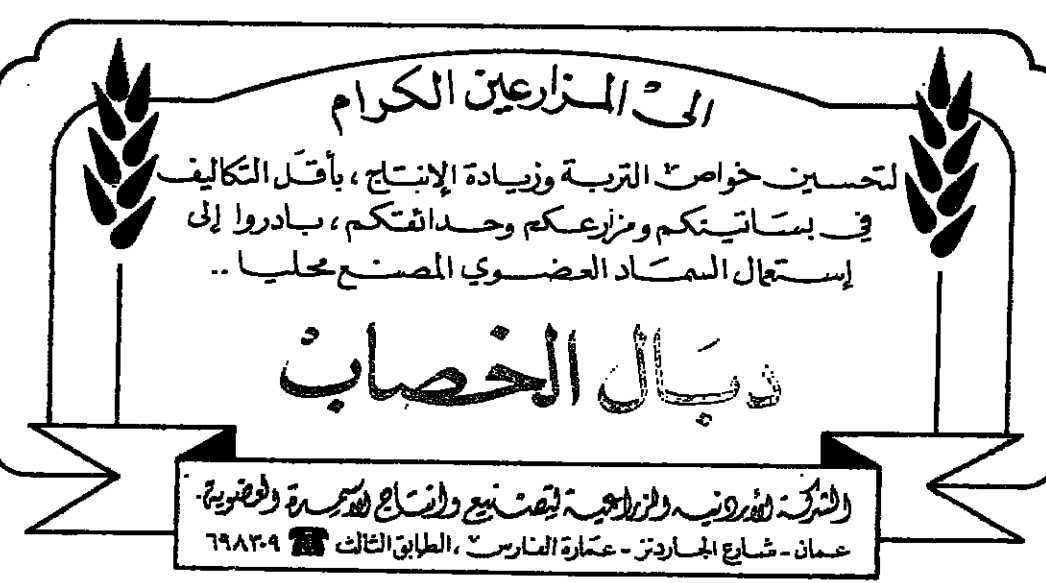 الى المزارعين الكرام
لتحسين خواص التربة وزيادة الإنتاج ، بأقل التكاليف
في بساتينكم ومزارعكم وحدائقكم ، بادروا إلى
إستعمال السماد العضوي المصنع محليا ..
دبال الخصاب
الشركة الأردنية الزراعية لتصنيع وانتاج الأسمدة العضوية.
عمان - شارع الجاردنز - عمارة الفارس ، الطابق الثالث ☎ ٦٩٨٢٠٩